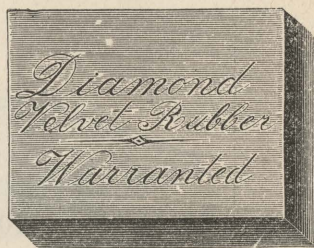 Diamond
Velvet Rubber
Warranted